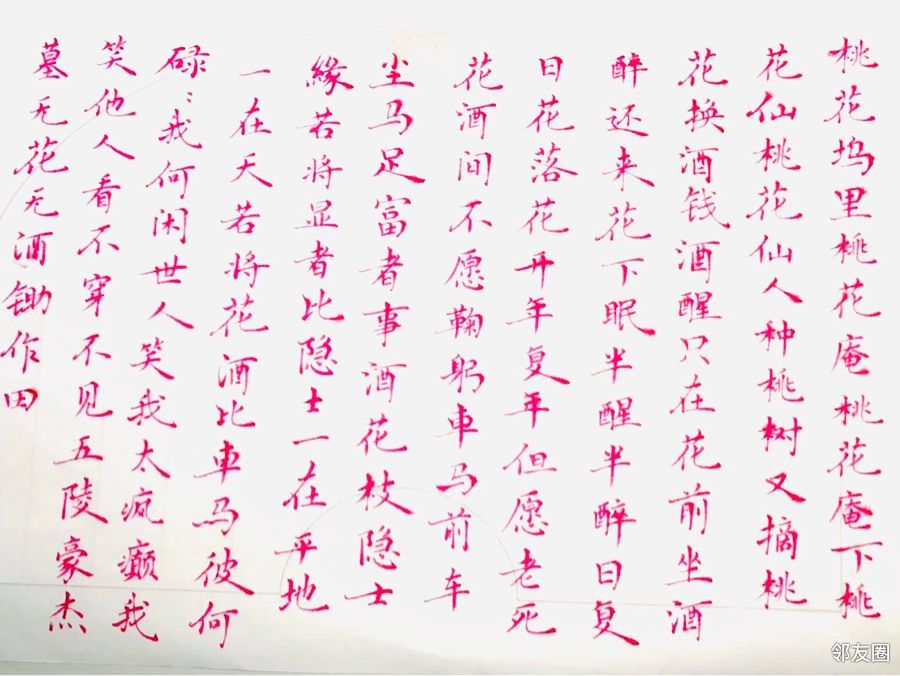 桃花坞里桃花庵桃花庵下桃
花仙桃花仙人种桃树又摘桃
花换酒钱酒醒只在花前坐酒
醉还来花下眠半醒半醉日复
日花落花开年复年但愿老死
花酒间不愿鞠躬車马前车
尘马足富者事酒花枝隐士
緣若将显者比隐士一在平地
一在天若将花酒比車马彼何
碌：我何闲世人笑我太疯癫我
笑他人看不穿不见五陵豪杰
墓无花无酒锄作田
邻友圈